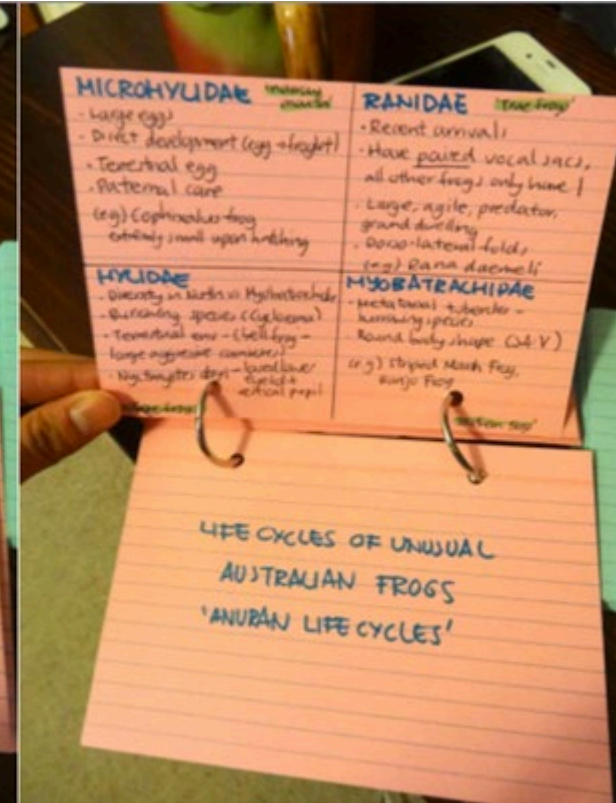 MICROHYLIDAE
- Large eggs
- Direct development (egg → froglet)
- Terrestrial egg
- Paternal care
(eg) Cophixalus frog
extremely small upon hatching
RANIDAE 'true frogs'
- Recent arrivals
- Have paired vocal sacs,
all other frogs only have 1
- Large, agile, predator,
ground dwelling
- Dorso-lateral folds
(eg) Rana daemeli
HYLIDAE
- Diversity in North vs Myobatrachidae
- Burrowing species (Cyclorana)
- Terrestrial env - (bell frog -
large aggressive carnivores)
- Nyctimystes dayi -
eyelid +
vertical pupil
'tree frogs'
MYOBATRACHIDAE
- Metatarsal tubercles -
burrowing species
- Round body shape
(eg) Striped Marsh Frog,
Banjo Frog
LIFE CYCLES OF UNUSUAL
AUSTRALIAN FROGS
'ANURAN LIFE CYCLES'